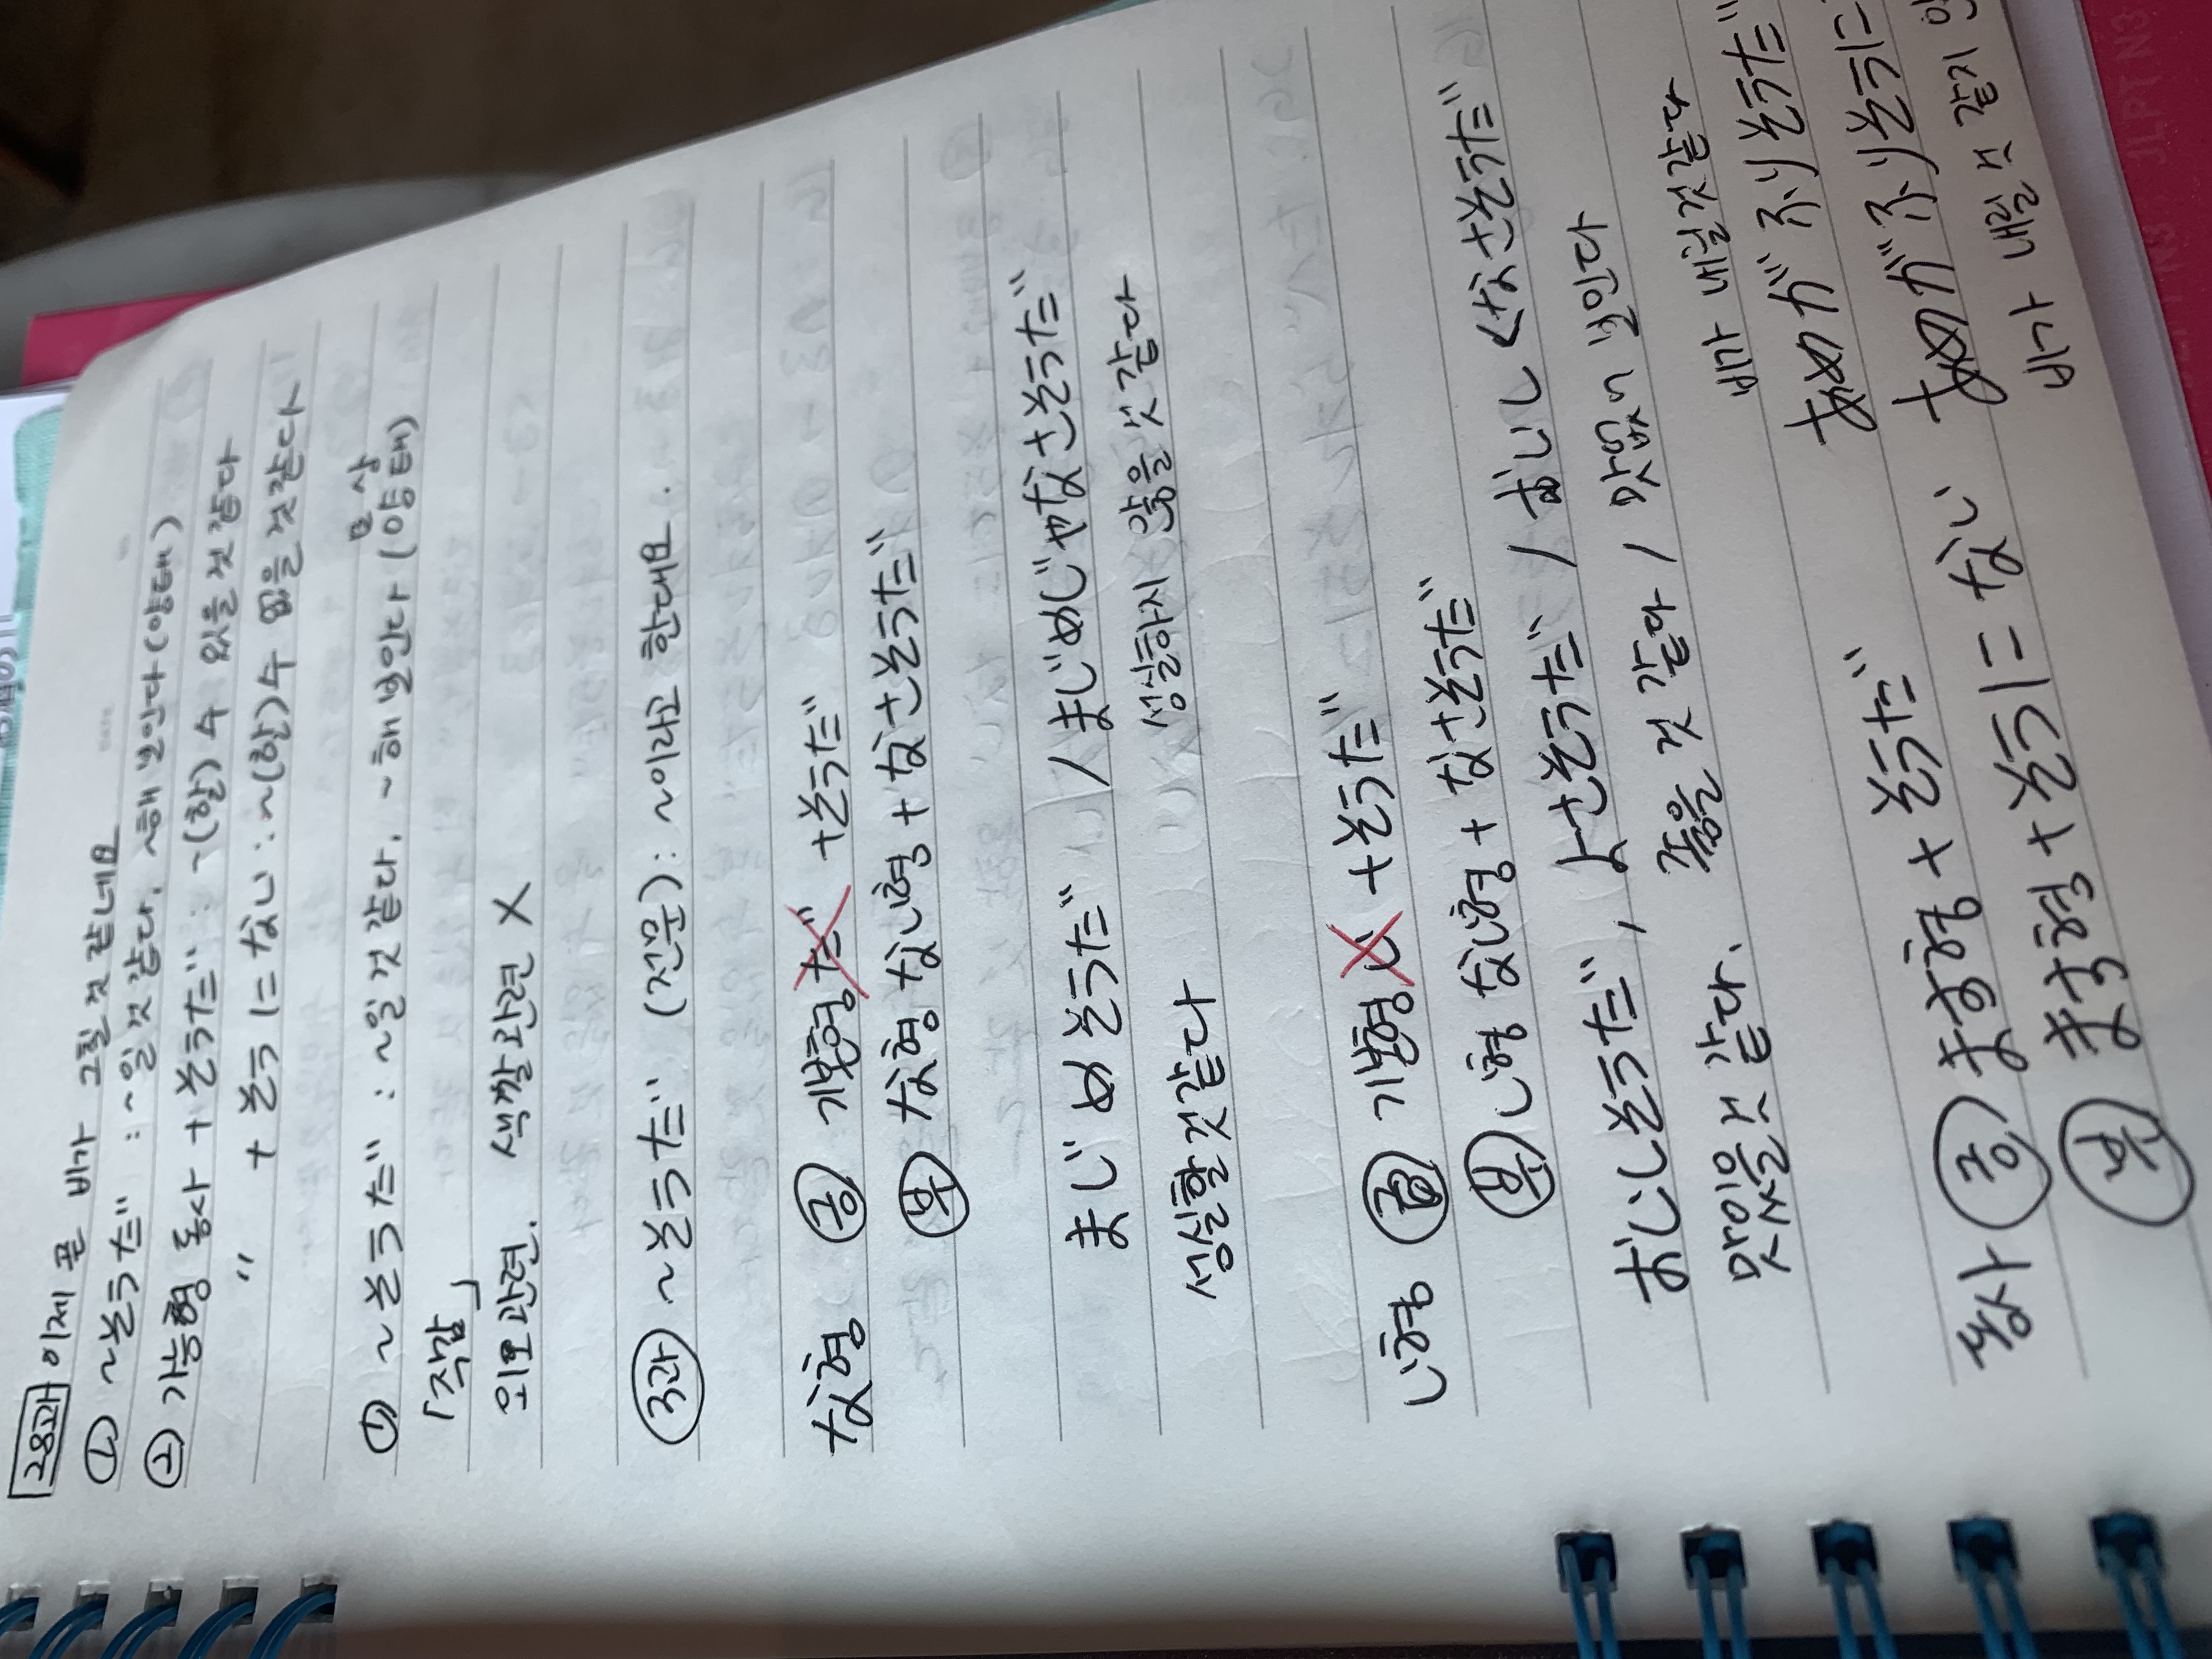 28과 이제 곧 비가 그칠 것 같네요
① ~そうだ : ~일 것 같다, ~해 보인다 (양태)
② 가능형 동사 + そうだ : ~(할) 수 있을 것 같다
〃 + そうにない : ~(할) 수 없을 것 같다
① ~そうだ : ~일 것 같다, ~해 보인다 (양태)
「직감」
외모관련. 색깔관련 X
30과 ~そうだ (전문) : ~이라고 한대요.
な형 긍 기본형だ +そうだ
부 な형 ない형 + なさそうだ
まじめそうだ / まじめじゃなさそうだ
성실할 것 같다 성실하지 않을 것 같다
い형 긍 기본형い +そうだ
부 い형 ない형 + なさそうだ
おいしそうだ, よさそうだ / おいしくなさそうだ
맛있을 것 같다, 좋을 것 같다 / 맛없어 보인다
비가 내릴 것 같다
동사 긍 ます형 + そうだ あめがふりそうだ
부 ます형 + そうにない あめがふりそうに
비가 내릴 것 같지
JLPT N3